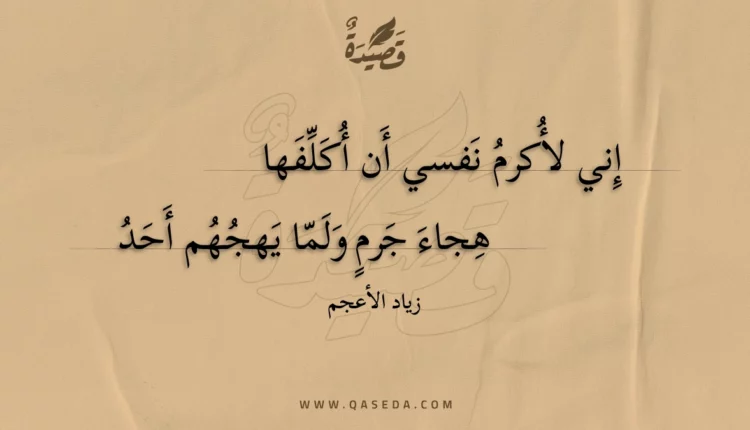 قَصِيدَةٌ
إِني لأُكرمُ نَفسي أَن أُكَلِّفَها
هِجاءَ جَرمٍ وَلَمّا يَهجُهُم أَحَدُ
زياد الأعجم
WWW.QASEDA.COM